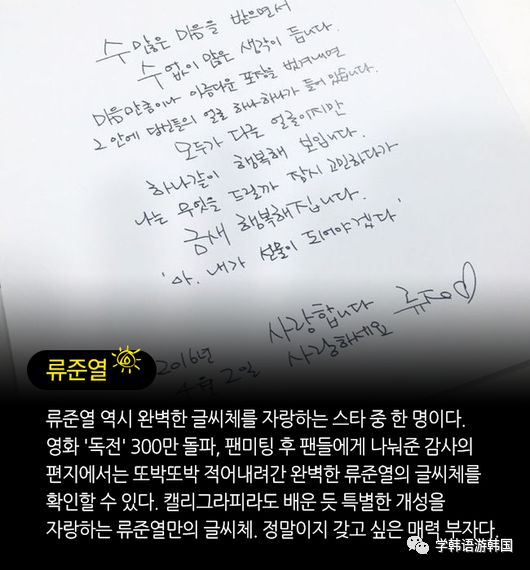 수 많은 마음을 받으면서
수 없이 많은 생각이 듭니다.
마음만큼이나 아름다운 포장을 벗겨내면
그 안에 당신들의 얼굴 하나하나가 들어 있습니다.
모두가 다른 얼굴이지만
하나같이 행복해 보입니다.
나는 무엇을 드릴까 잠시 고민하다가
금새 행복해집니다.
'아. 내가 선물이 되어야겠다'
사랑합니다
사랑하세요
2016년
2일
류준열
류준열 역시 완벽한 글씨체를 자랑하는 스타 중 한 명이다.
영화 '독전' 300만 돌파, 팬미팅 후 팬들에게 나눠준 감사의
편지에서는 또박또박 적어내려간 완벽한 류준열의 글씨체를
확인할 수 있다. 캘리그라피라도 배운 듯 특별한 개성을
자랑하는 류준열만의 글씨체. 정말이지 갖고 싶은 매력 부자다.
学韩语游韩国